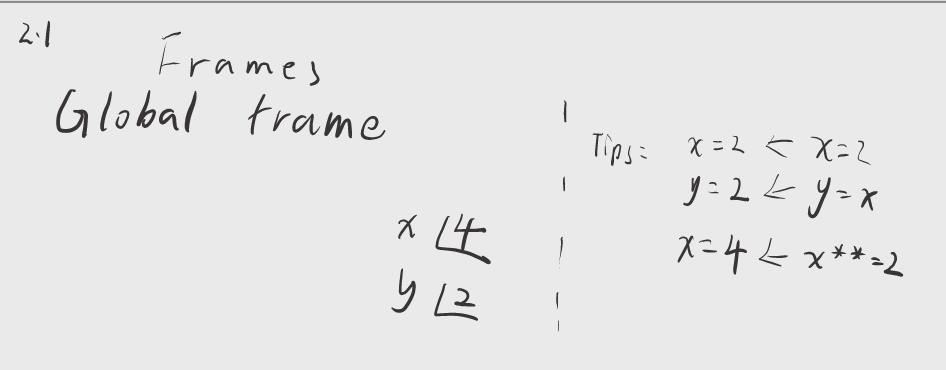 2.1
Frames
Global frame
x 4
y 2
Tips: x=2 ← x=2
y=2 ← y=x
x=4 ← x**=2